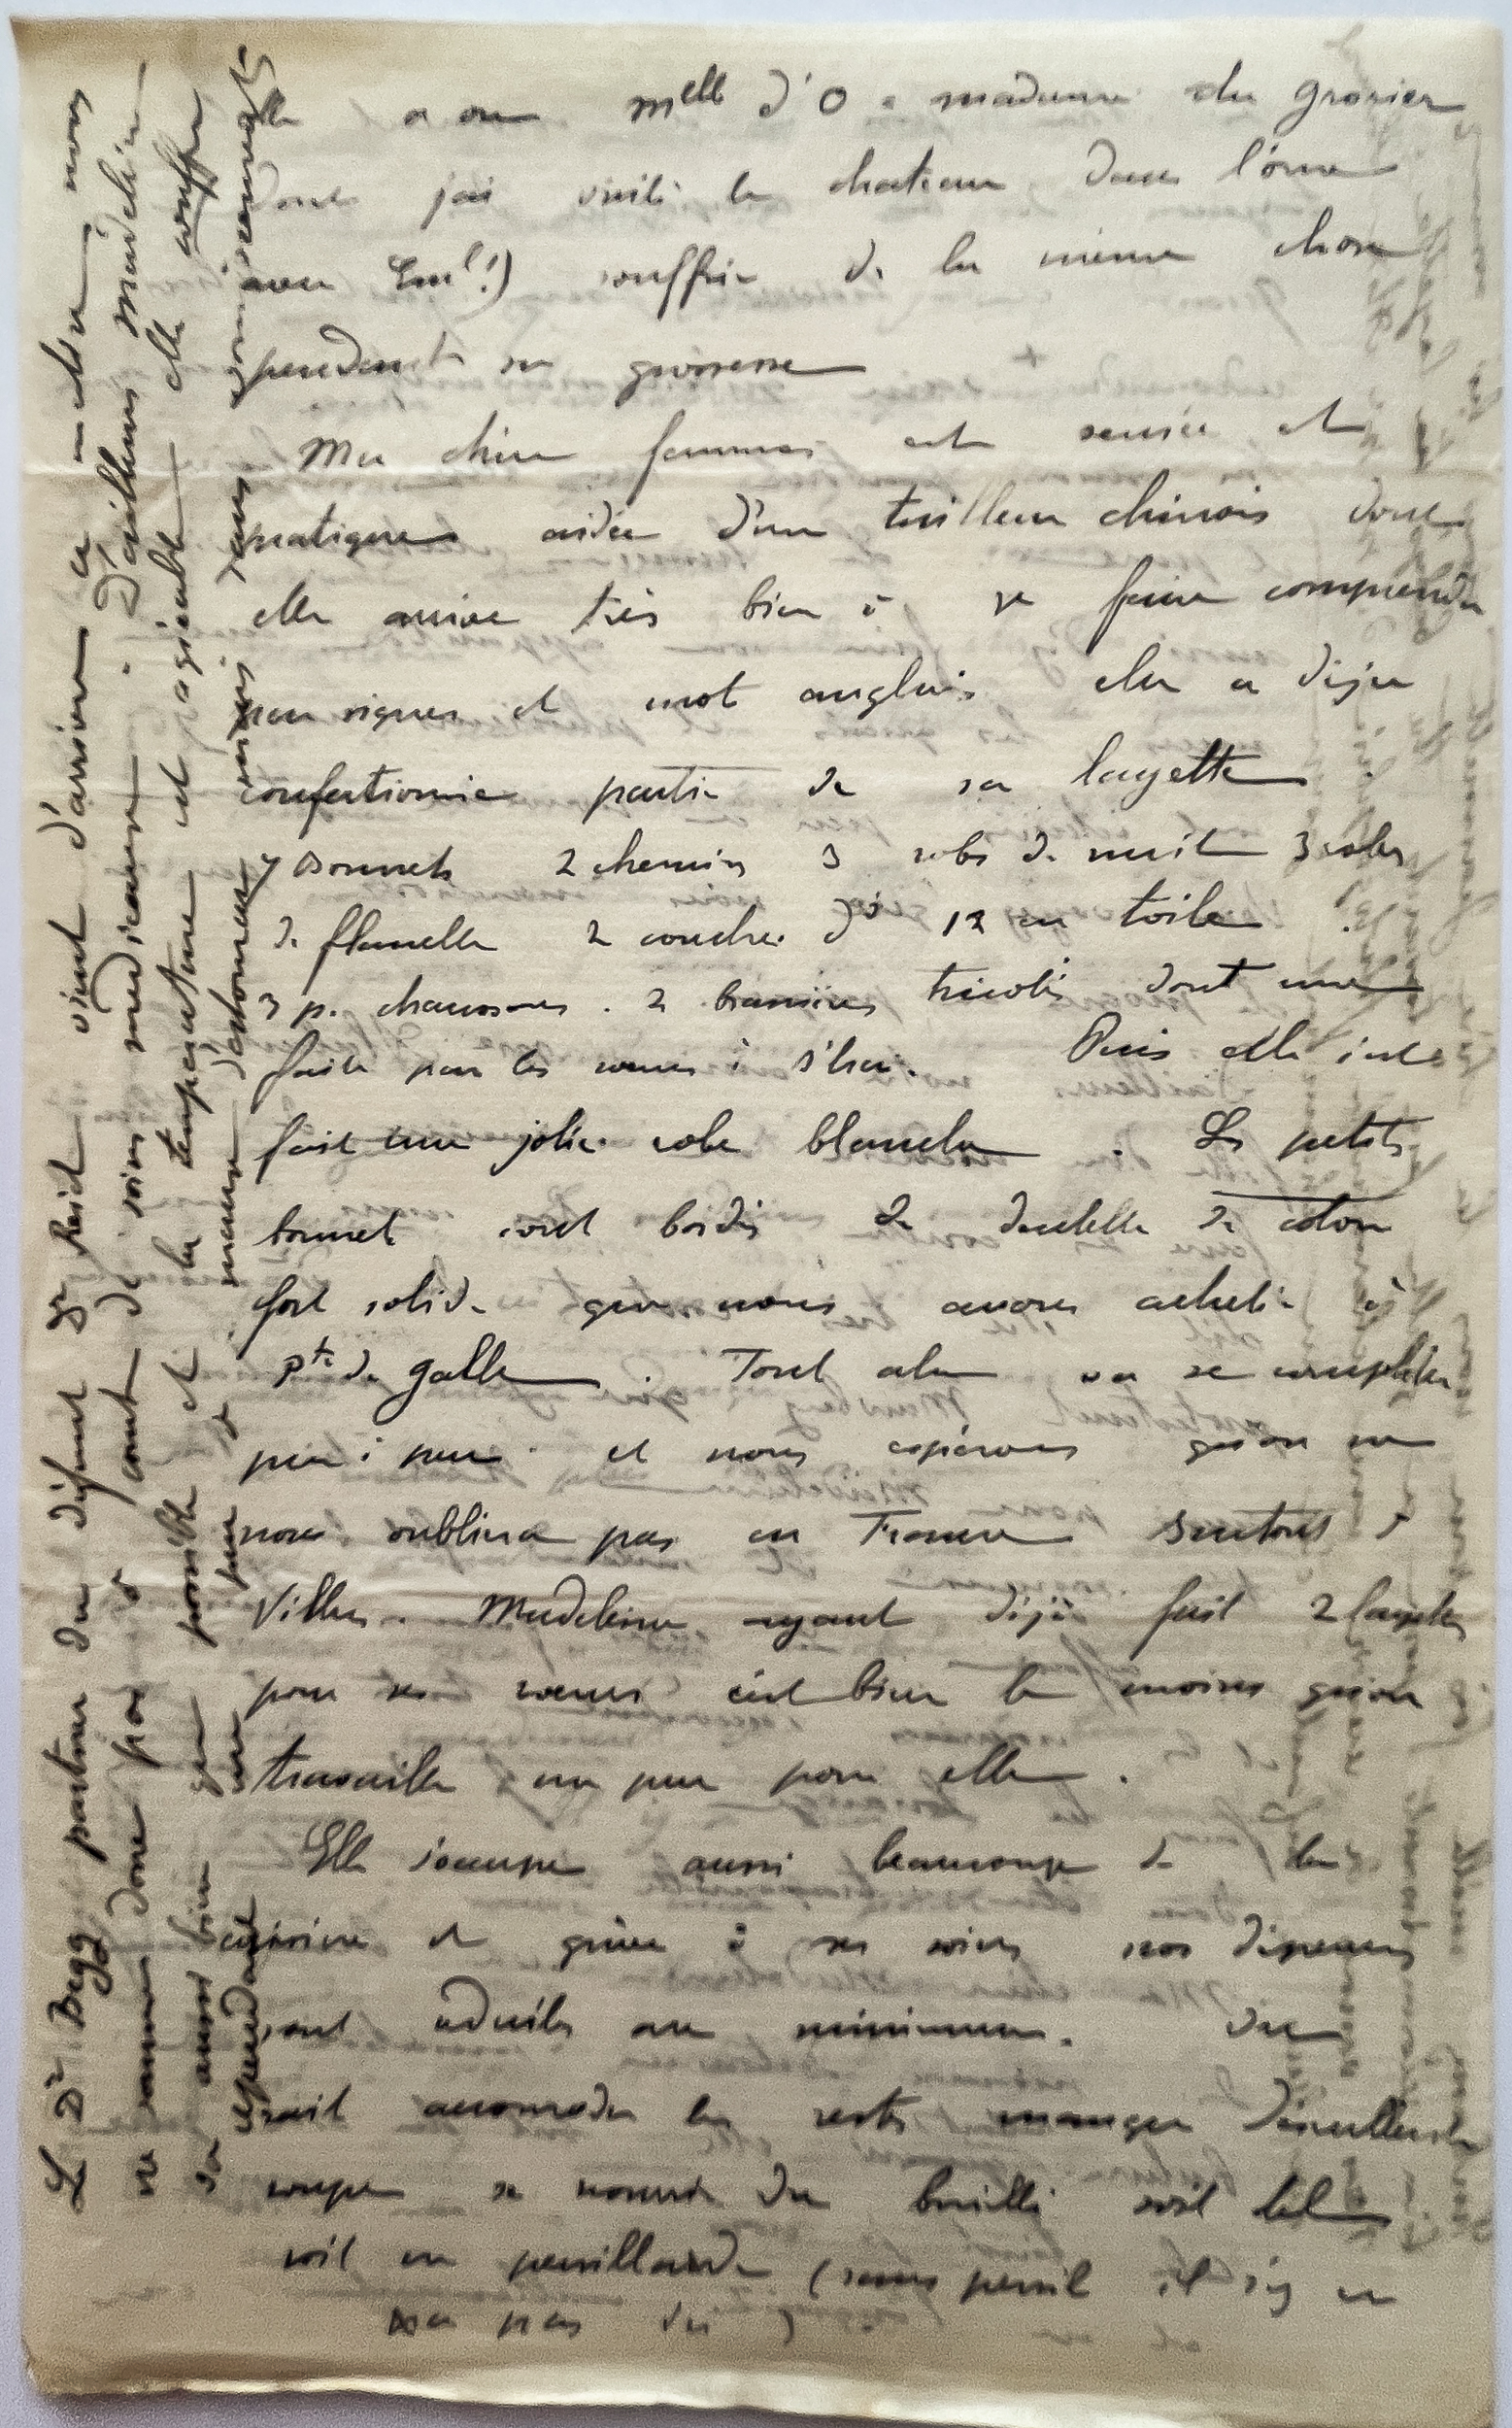 elle a vu Melle d'O à madame du Grosriez
dont j'ai visité le chateau dans l'orne
avec Eml!) souffrir de la même chose
pendant sa grossesse
Ma chère femme est sensée et
pratique aidée d'un tailleur chinois dont
elle arrive très bien à se faire comprendre
par signes et mot anglais elle a déjà
confectionné partie de sa layette
7 bonnets 2 chemises 3 robes de nuit 3 robes
de flanelle 2 couches do 12 en toile
3 p. chaussons . 2 brassières tricotés dont une
faite par les sœurs à S'haï. Puis elle s'est
fait une jolie robe blanche . Les petits
bonnet sont bordés de dentelle de coton
fort solide que nous avons acheté à
Pte de Galle . Tout cela va se compléter
peu à peu . et nous espérons qu'on ne
nous oubliera pas en France surtout à
Villers . Madeleine ayant déjà fait 2 layettes
pour ses sœurs c'est bien le moins qu'on
travaille un peu pour elle .
Elle s'occupe aussi beaucoup de la
cuisine et grâce à ses soins nos dépenses
sont réduites au minimum .
sait accomoder les restes manger
soupe se nourrir du bouilli soit tel
soit en persillade (sans persil il n'y en
a pas ici )
Le Dr Begg partner du défunt Dr Reid vient d'arriver ce-que nous
ne sommes donc pas à court de soins médicaux . D'ailleurs Madeleine
va aussi bien que possible et la température est agréable elle souffre
cependant un peu de maux d'estomac jamais